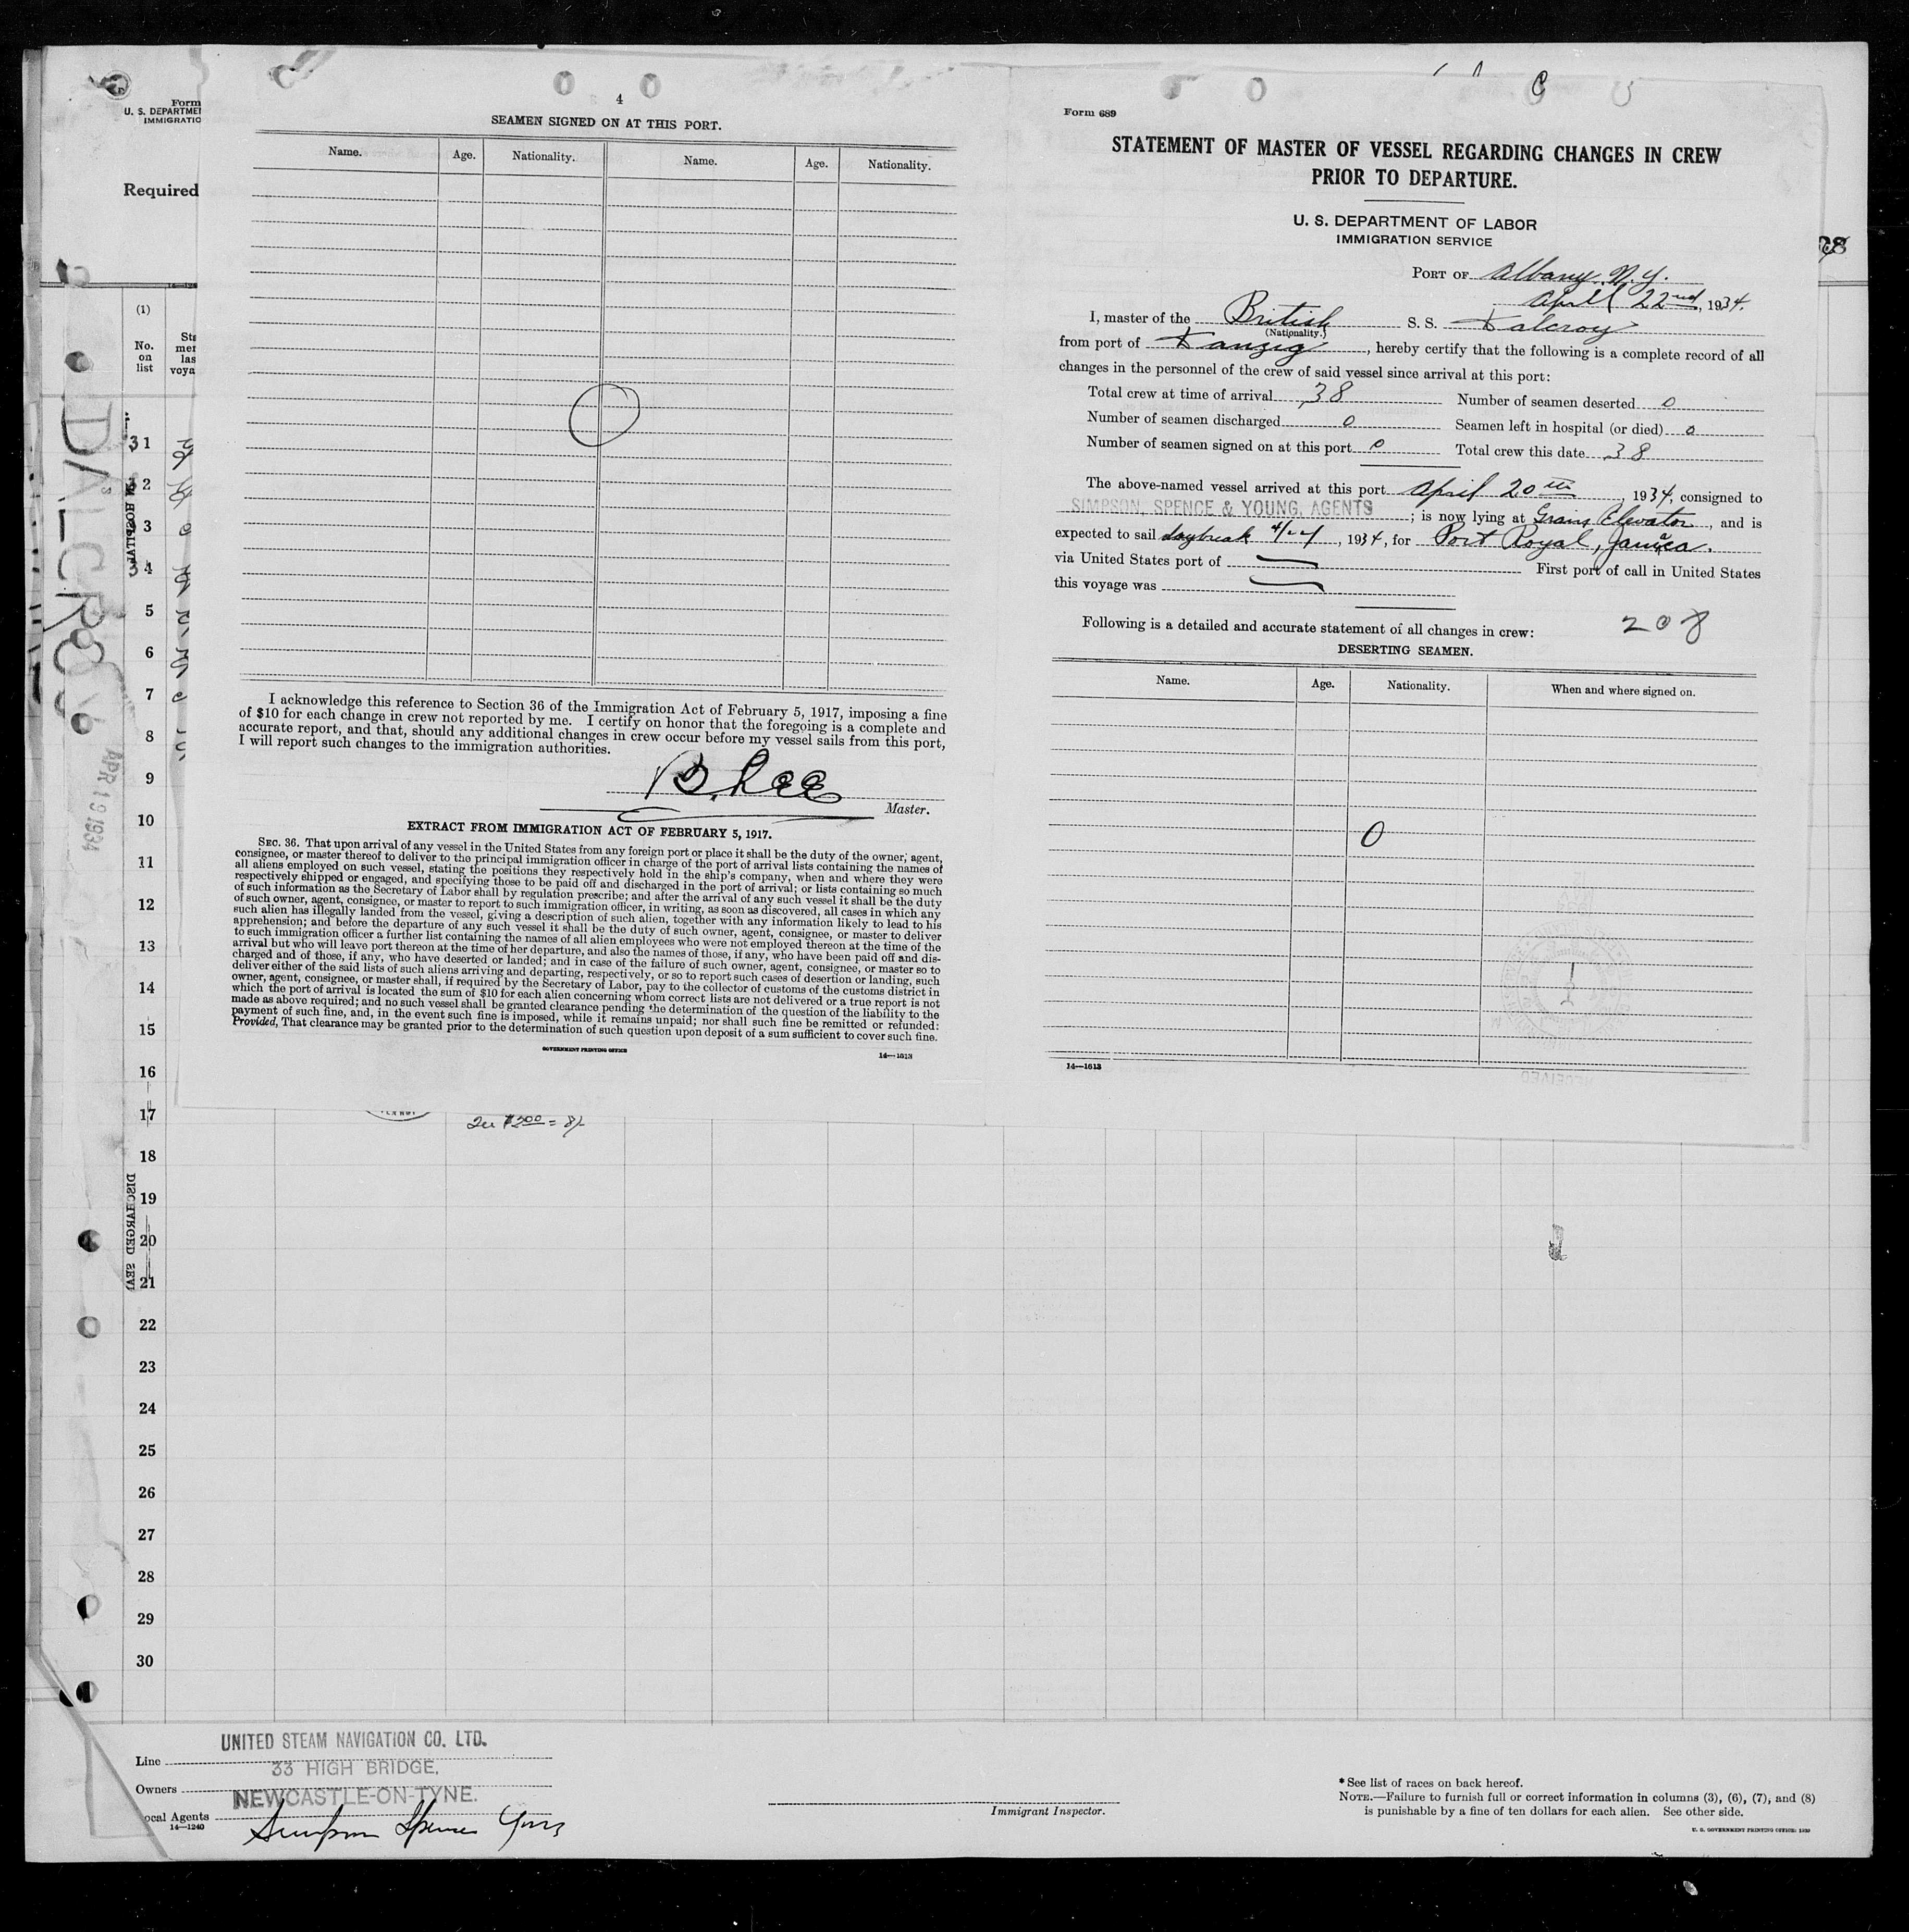 Form
U. S. DEPARTMEN
IMMIGRATIO
Required
(1)
No.
on
list
Sta
mer
las
voya
DALCROY
APR 19 1934
31
32
33
34
5
6
7
8
9
10
11
12
13
14
15
16
17
18
19
20
21
22
23
24
25
26
27
28
29
30
IN HOSPITAL
DISCHARGED SEA
4
SEAMEN SIGNED ON AT THIS PORT.
Name. Age. Nationality. Name. Age. Nationality.
I acknowledge this reference to Section 36 of the Immigration Act of February 5, 1917, imposing a fine
of $10 for each change in crew not reported by me. I certify on honor that the foregoing is a complete and
accurate report, and that, should any additional changes in crew occur before my vessel sails from this port,
I will report such changes to the immigration authorities.
B. Lee
Master.
EXTRACT FROM IMMIGRATION ACT OF FEBRUARY 5, 1917.
SEC. 36. That upon arrival of any vessel in the United States from any foreign port or place it shall be the duty of the owner, agent,
consignee, or master thereof to deliver to the principal immigration officer in charge of the port of arrival lists containing the names of
all aliens employed on such vessel, stating the positions they respectively hold in the ship's company, when and where they were
respectively shipped or engaged, and specifying those to be paid off and discharged in the port of arrival; or lists containing so much
of such information as the Secretary of Labor shall by regulation prescribe; and after the arrival of any such vessel it shall be the duty
of such owner, agent, consignee, or master to report to such immigration officer, in writing, as soon as discovered, all cases in which any
such alien has illegally landed from the vessel, giving a description of such alien, together with any information likely to lead to his
apprehension; and before the departure of any such vessel it shall be the duty of such owner, agent, consignee, or master to deliver
to such immigration officer a further list containing the names of all alien employees who were not employed thereon at the time of the
arrival but who will leave port thereon at the time of her departure, and also the names of those, if any, who have been paid off and dis-
charged and of those, if any, who have deserted or landed; and in case of the failure of such owner, agent, consignee, or master so to
deliver either of the said lists of such aliens arriving and departing, respectively, or so to report such cases of desertion or landing, such
owner, agent, consignee, or master shall, if required by the Secretary of Labor, pay to the collector of customs of the customs district in
which the port of arrival is located the sum of $10 for each alien concerning whom correct lists are not delivered or a true report is not
made as above required; and no such vessel shall be granted clearance pending the determination of the question of the liability to the
payment of such fine, and, in the event such fine is imposed, while it remains unpaid; nor shall such fine be remitted or refunded:
Provided, That clearance may be granted prior to the determination of such question upon deposit of a sum sufficient to cover such fine.
GOVERNMENT PRINTING OFFICE 14—1613
Form 689
STATEMENT OF MASTER OF VESSEL REGARDING CHANGES IN CREW
PRIOR TO DEPARTURE.
U. S. DEPARTMENT OF LABOR
IMMIGRATION SERVICE
PORT OF Albany, N.Y.
April 22nd, 1934.
I, master of the British S. S. Dalcroy
(Nationality.)
from port of Danzig, hereby certify that the following is a complete record of all
changes in the personnel of the crew of said vessel since arrival at this port:
Total crew at time of arrival 38 Number of seamen deserted 0
Number of seamen discharged 0 Seamen left in hospital (or died) 0
Number of seamen signed on at this port 0 Total crew this date 38
The above-named vessel arrived at this port April 20th, 1934, consigned to
SIMPSON, SPENCE & YOUNG, AGENTS; is now lying at Grain Elevator, and is
expected to sail daybreak, 1934, for Port Royal, Jamaica.
via United States port of First port of call in United States
this voyage was
Following is a detailed and accurate statement of all changes in crew: 208
DESERTING SEAMEN.
Name. Age. Nationality. When and where signed on.
0
14—1613
RECEIVED
UNITED STEAM NAVIGATION CO. LTD.
Line
33 HIGH BRIDGE,
Owners
NEWCASTLE-ON-TYNE.
ocal Agents Simpson Spence Young
14—1240
Immigrant Inspector.
* See list of races on back hereof.
NOTE.—Failure to furnish full or correct information in columns (3), (6), (7), and (8)
is punishable by a fine of ten dollars for each alien. See other side.